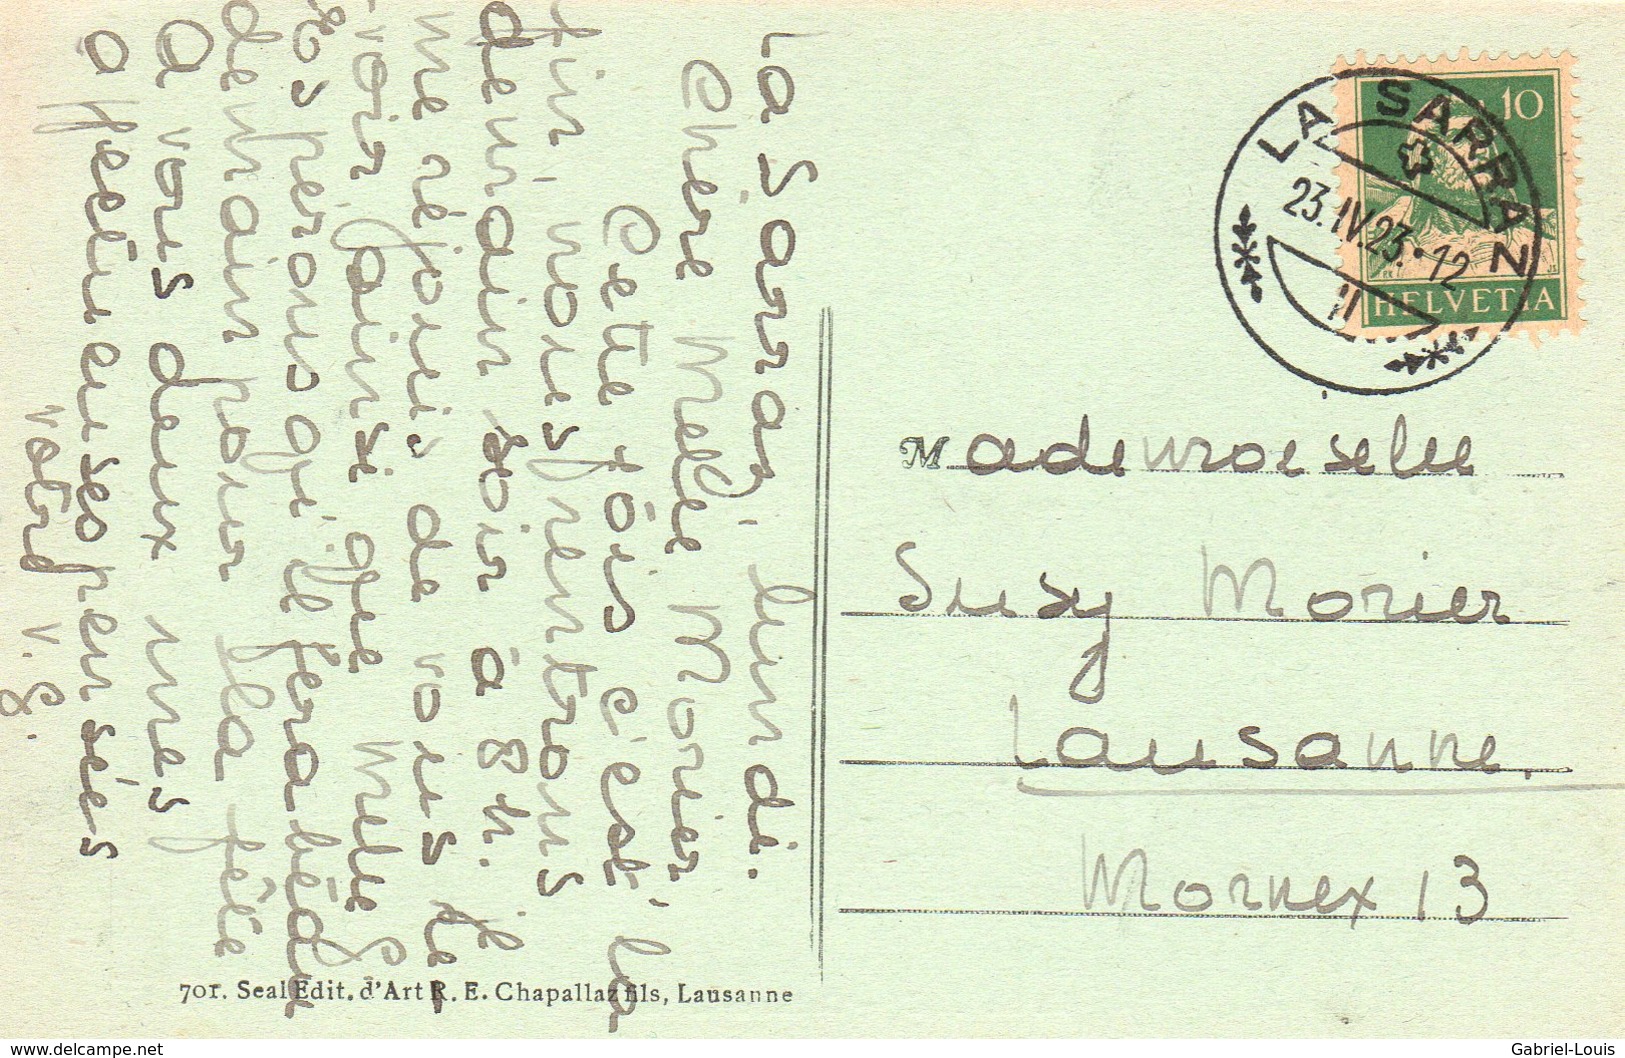 La Sarraz, lundi.
Chère Melle Morier
Cette fois c'est la
fin, nous rentrons
demain soir à 8 h. je
me réjouis de vous re
voir, ainsi que Melle G.
Espérons qu'il fera beau
demain pour la fête
A vous deux mes
affectueuses pensées
votre V. G.
10
HELVETIA
LA SARRAZ
23.IV.23.•12
Mademoiselle
Suzy Morier
Lausanne.
Mornex 13
701. Seal Edit. d'Art R. E. Chapallaz fils, Lausanne
www.delcampe.net
Gabriel-Louis